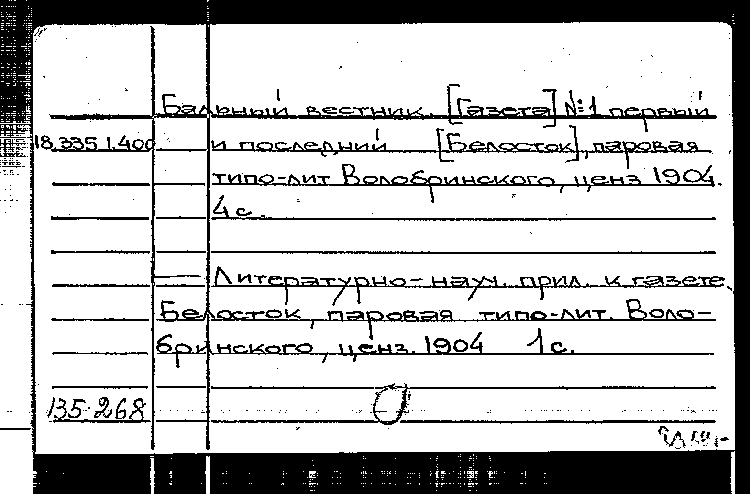 Бальный вестник. [Газета] №1 первый
18.335 1.400 и последний [Белосток], паровая
типо-лит Волобринского, ценз 1904.
4с.
— Литературно-науч. прил. к газете
Белосток, паровая типо-лит. Воло-
бринского, ценз. 1904 1с.
135-268